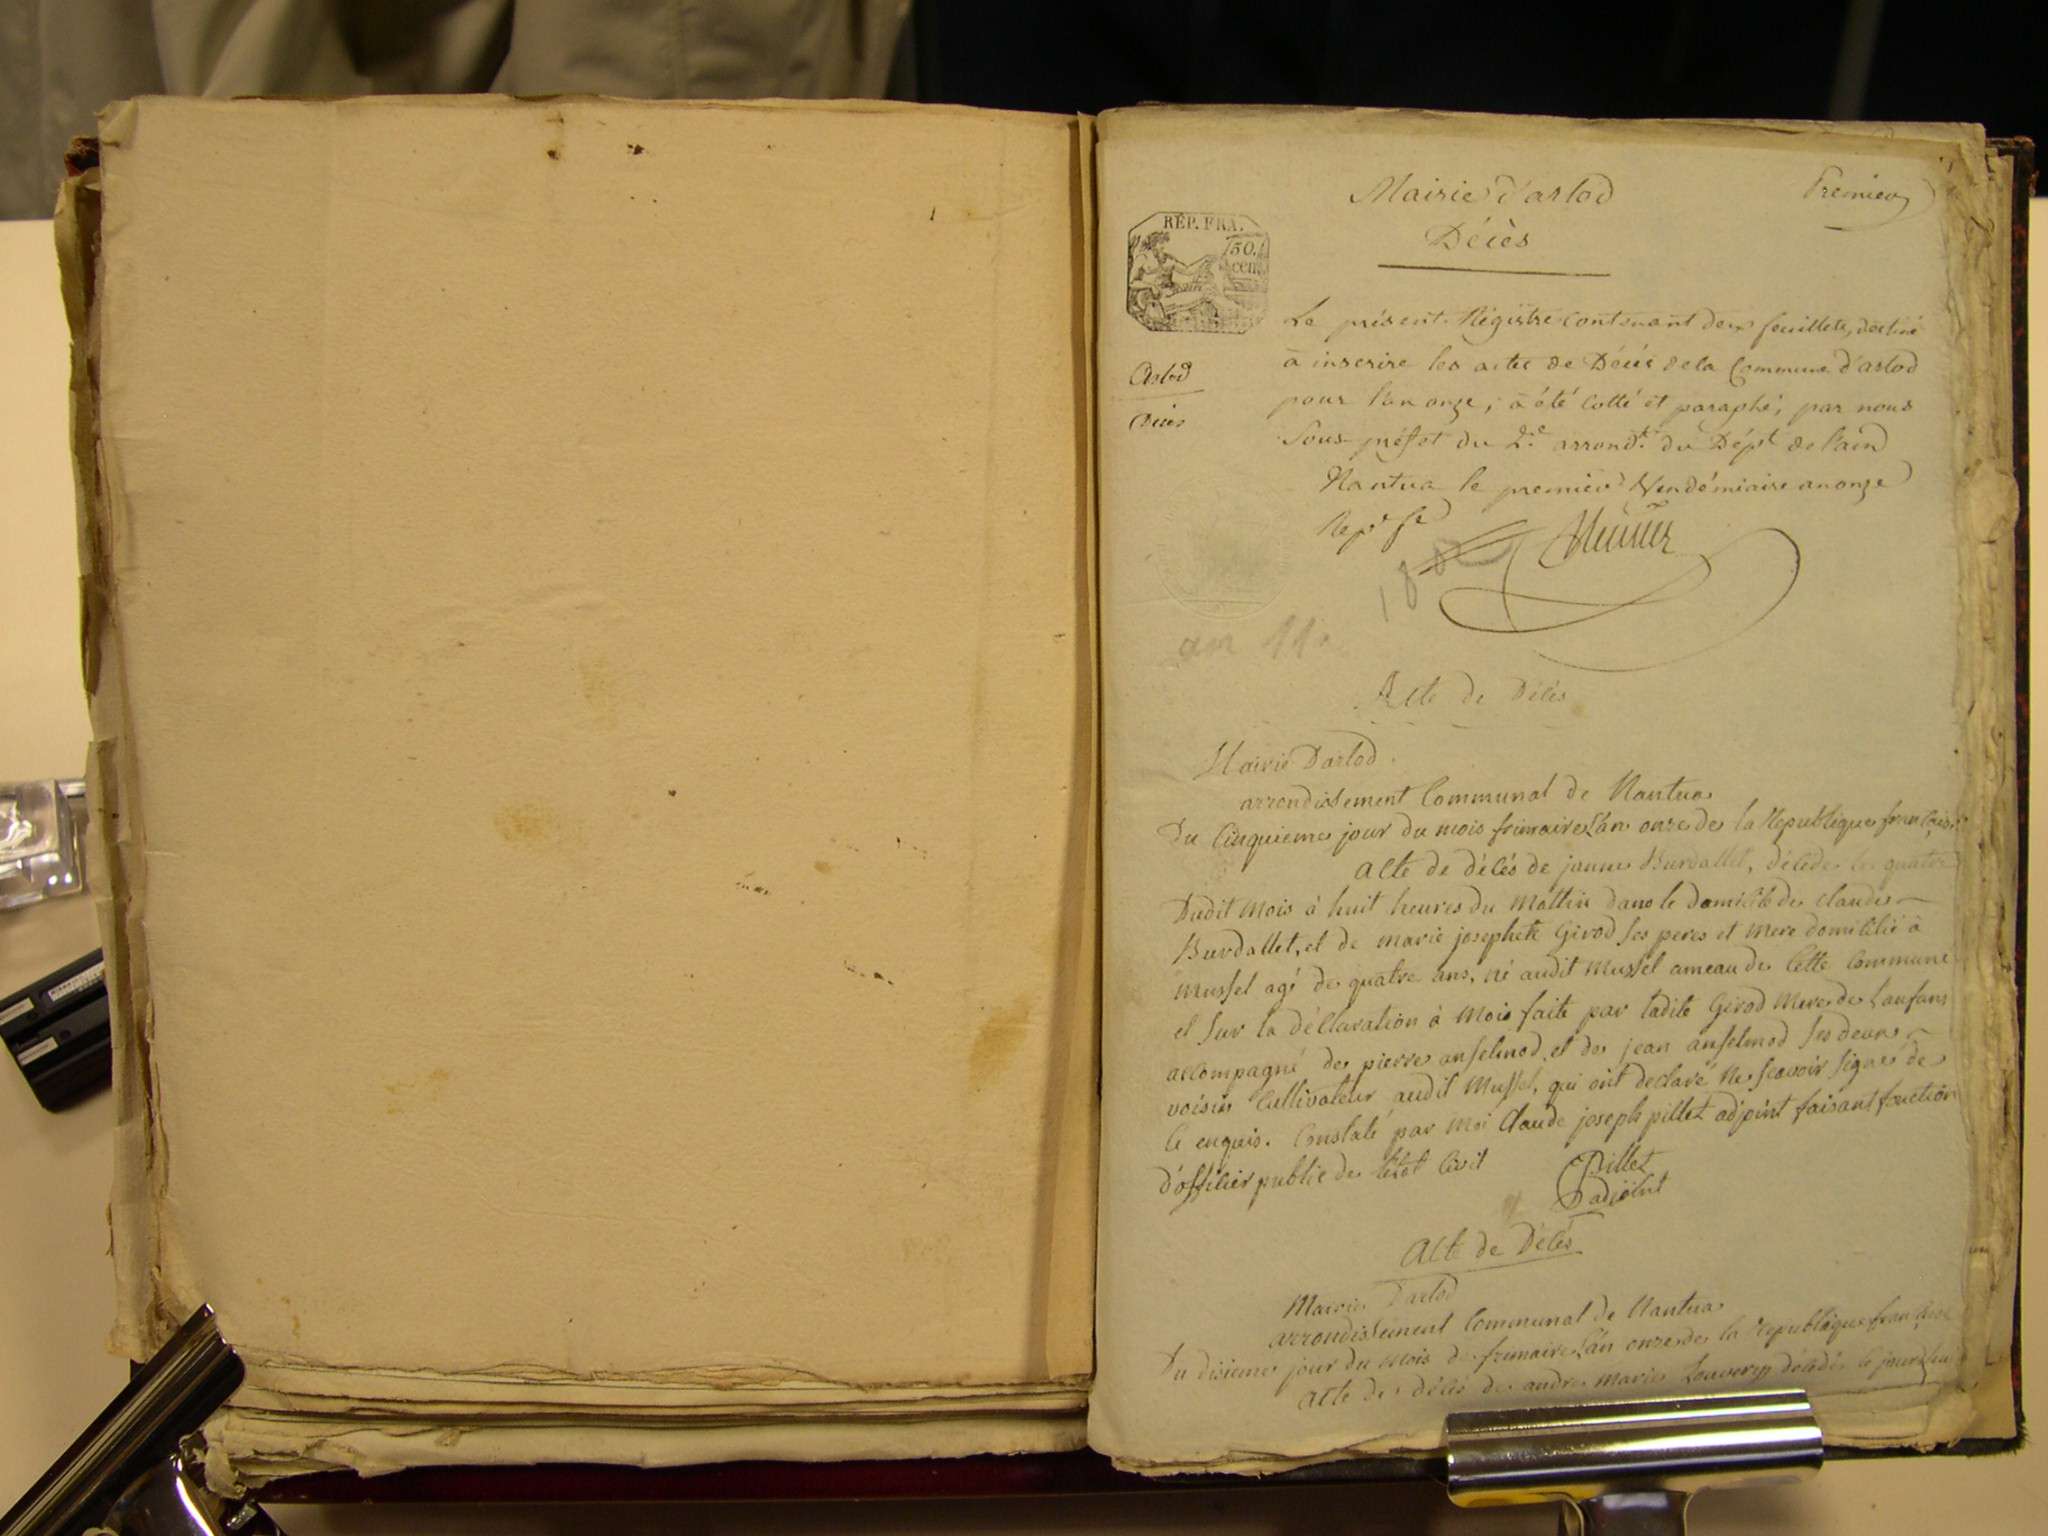 Mairie d'arlod
Premier
Décès
RÉP. FRA.
50.
cent
Le présent Régistre contenant deux feuillets, destiné
à inscrire les actes de Décès de la Commune d'arlod
Arlod
pour l'an onze, à été cotté et paraphé, par nous
Décès
Sous-préfet du 2.e arrond.t du Dép.t de l'ain
Nantua le premier Vendémiaire an onze
an 11
Acte de Délés
Mairie Darlod.
arrondissement Communal de Nantua
Du Cinquieme jour du mois frimaire L'an onze de la Republique francaise
Acte de délés de jaume Burdallet, délédé le quatre
Dudit Mois à huit heures du Mattin dans le domicile de claude
Burdallet, et de marie josephete Girod ses peres et mere domicilié à
Mussel agé de quatre ans, né audit Mussel ameau de Cette Commune
et sur la déclaration à Mois faite par ladite Girod Mere de Lanfans
accompagné de pierre anselmod et de jean anselmod ses deux
voisin Cultivateur audit Mussel, qui ont declaré Ne scavoir signer de
ce enquis. Constaté par Moi Claude joseph pillet adjoint faisant fonction
d'offilier public de letat Civil
Pillet
adjoint
Acte de Délés
Mairie Darlod
arrondissement Communal de Nantua
Du disieme jour du mois de frimaire L'an onze de la Republique francaise
acte de délés de andre marie délédé le